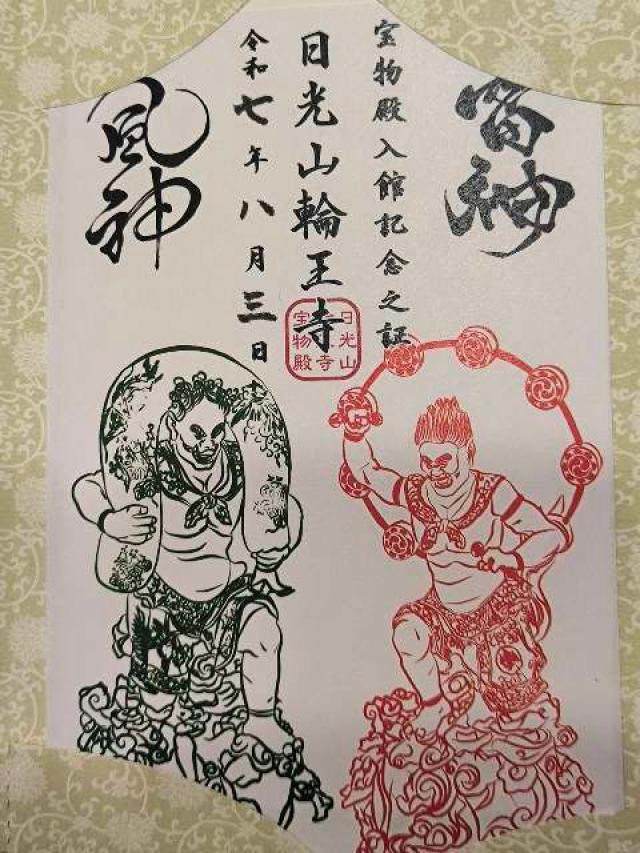 雷神
宝物殿入館記念之証
日光山輪王寺
令和七年八月三日
風神
日光山
寺
宝物殿